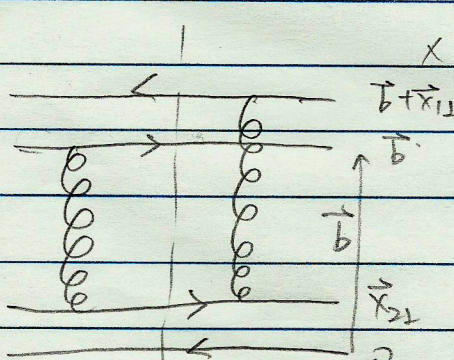 x
b⃗+x⃗₁⊥
b⃗
b⃗
x⃗₂⊥